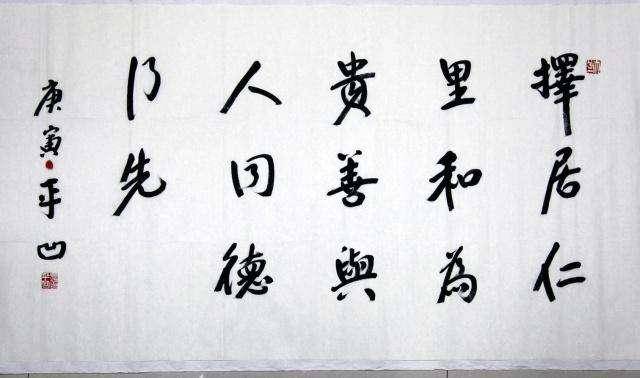 擇居仁
里和為
貴善與
人同德
行先
庚寅平凹